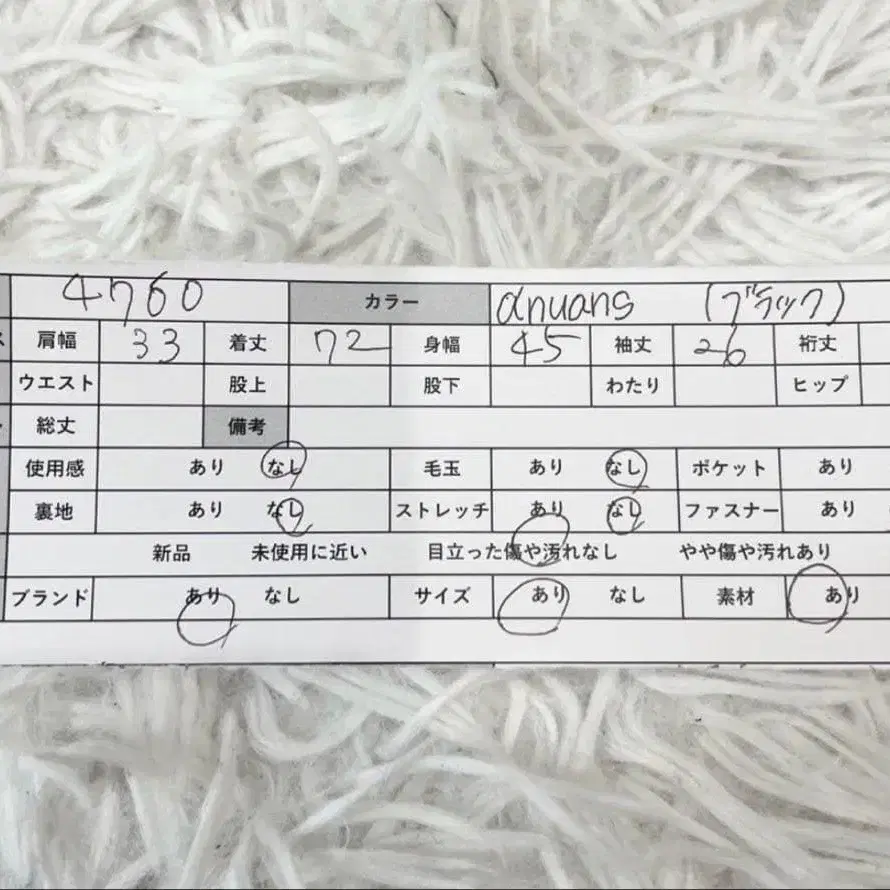 4760 カラー anuans (ブラック)
肩幅 33 着丈 72 身幅 45 袖丈 26 裄丈
ウエスト 股上 股下 わたり ヒップ
総丈 備考
使用感 あり なし 毛玉 あり なし ポケット あり
裏地 あり なし ストレッチ あり なし ファスナー あり
新品 未使用に近い 目立った傷や汚れなし やや傷や汚れあり
ブランド あり なし サイズ あり なし 素材 あり